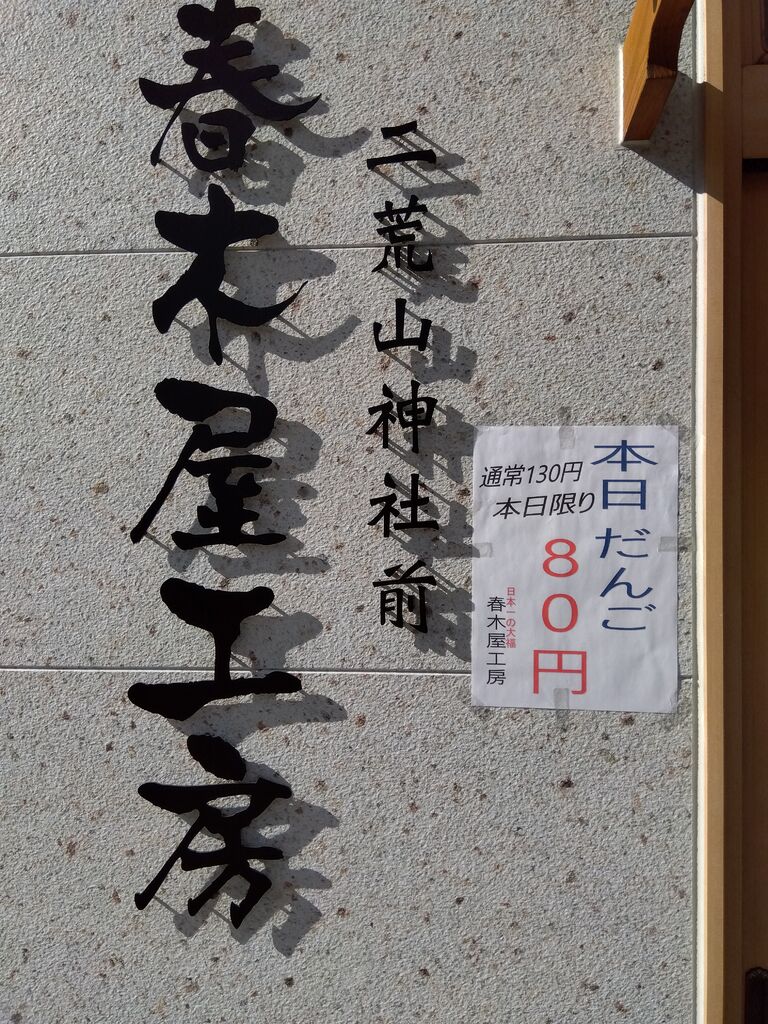 二荒山神社前
春木屋工房
本日だんご
通常130円
本日限り
80円
日本一の大福
春木屋工房